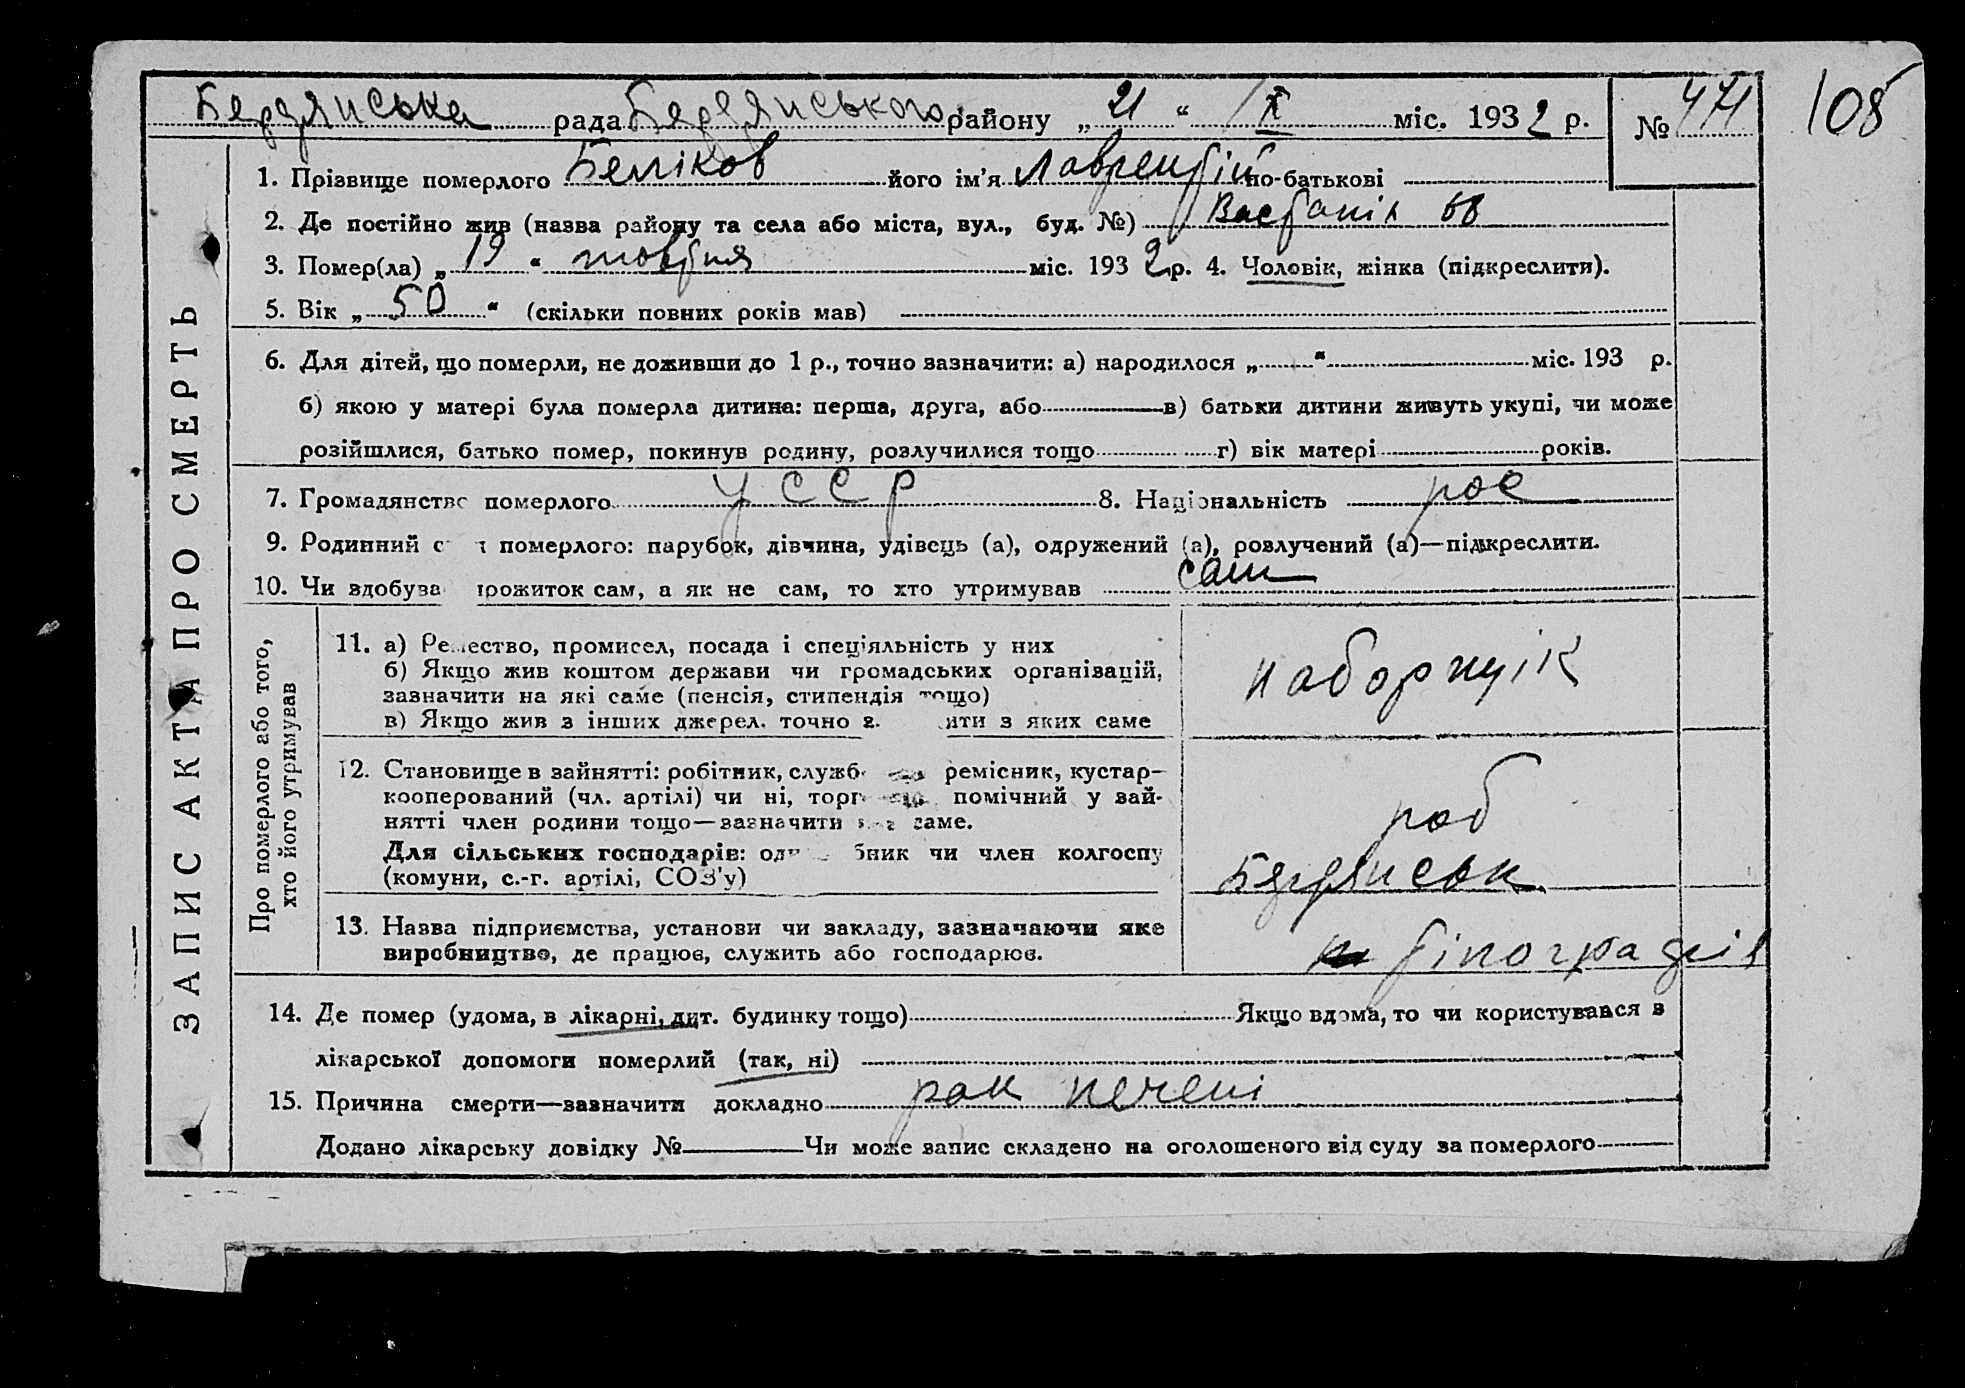 Бердянська рада Бердянського району „ 21 “ X міс. 1932 р. № 471 108
1. Прізвище померлого Беліков його ім'я Лаврентій по-батькові
2. Де постійно жив (назва району та села або міста, вул., буд. №) 68
3. Помер(ла) „ 19 “ жовтня міс. 1932 р. 4. Чоловік, жінка (підкреслити).
5. Вік „ 50 “ (скільки повних років мав)
6. Для дітей, що померли, не доживши до 1 р., точно зазначити: а) народилося „ “ міс. 193 р.
б) якою у матері була померла дитина: перша, друга, або в) батьки дитини живуть укупі, чи може
розійшлися, батько помер, покинув родину, розлучилися тощо г) вік матері років.
7. Громадянство померлого УССР 8. Національність рос
9. Родинний померлого: парубок, дівчина, удівець (а), одружений (а), розлучений (а)—підкреслити.
10. Чи здобува прожиток сам, а як не сам, то хто утримував сам
ЗАПИС АКТА ПРО СМЕРТЬ
Про померлого або того,
хто його утримував
11. а) Ремество, промисел, посада і спеціяльність у них
б) Якщо жив коштом держави чи громадських організацій,
зазначити на які саме (пенсія, стипендія тощо)
в) Якщо жив з інших джерел. точно з ити з яких саме
наборщік
12. Становище в зайнятті: робітник, служб ремісник, кустар-
кооперований (чл. артілі) чи ні, торг помічний у зай-
нятті член родини тощо—зазначити саме.
Для сільських господарів: од бник чи член колгоспу
(комуни, с.-г. артілі, СОЗ'у)
роб
13. Назва підприємства, установи чи закладу, зазначаючи яке
виробництво, де працює, служить або господарює.
Бердянськ
тіпографія
14. Де помер (удома, в лікарні, дит. будинку тощо) Якщо вдома, то чи користувався в
лікарської допомоги померлий (так, ні)
15. Причина смерти—зазначити докладно рак печені
Додано лікарську довідку № Чи може запис складено на оголошеного від суду за померлого